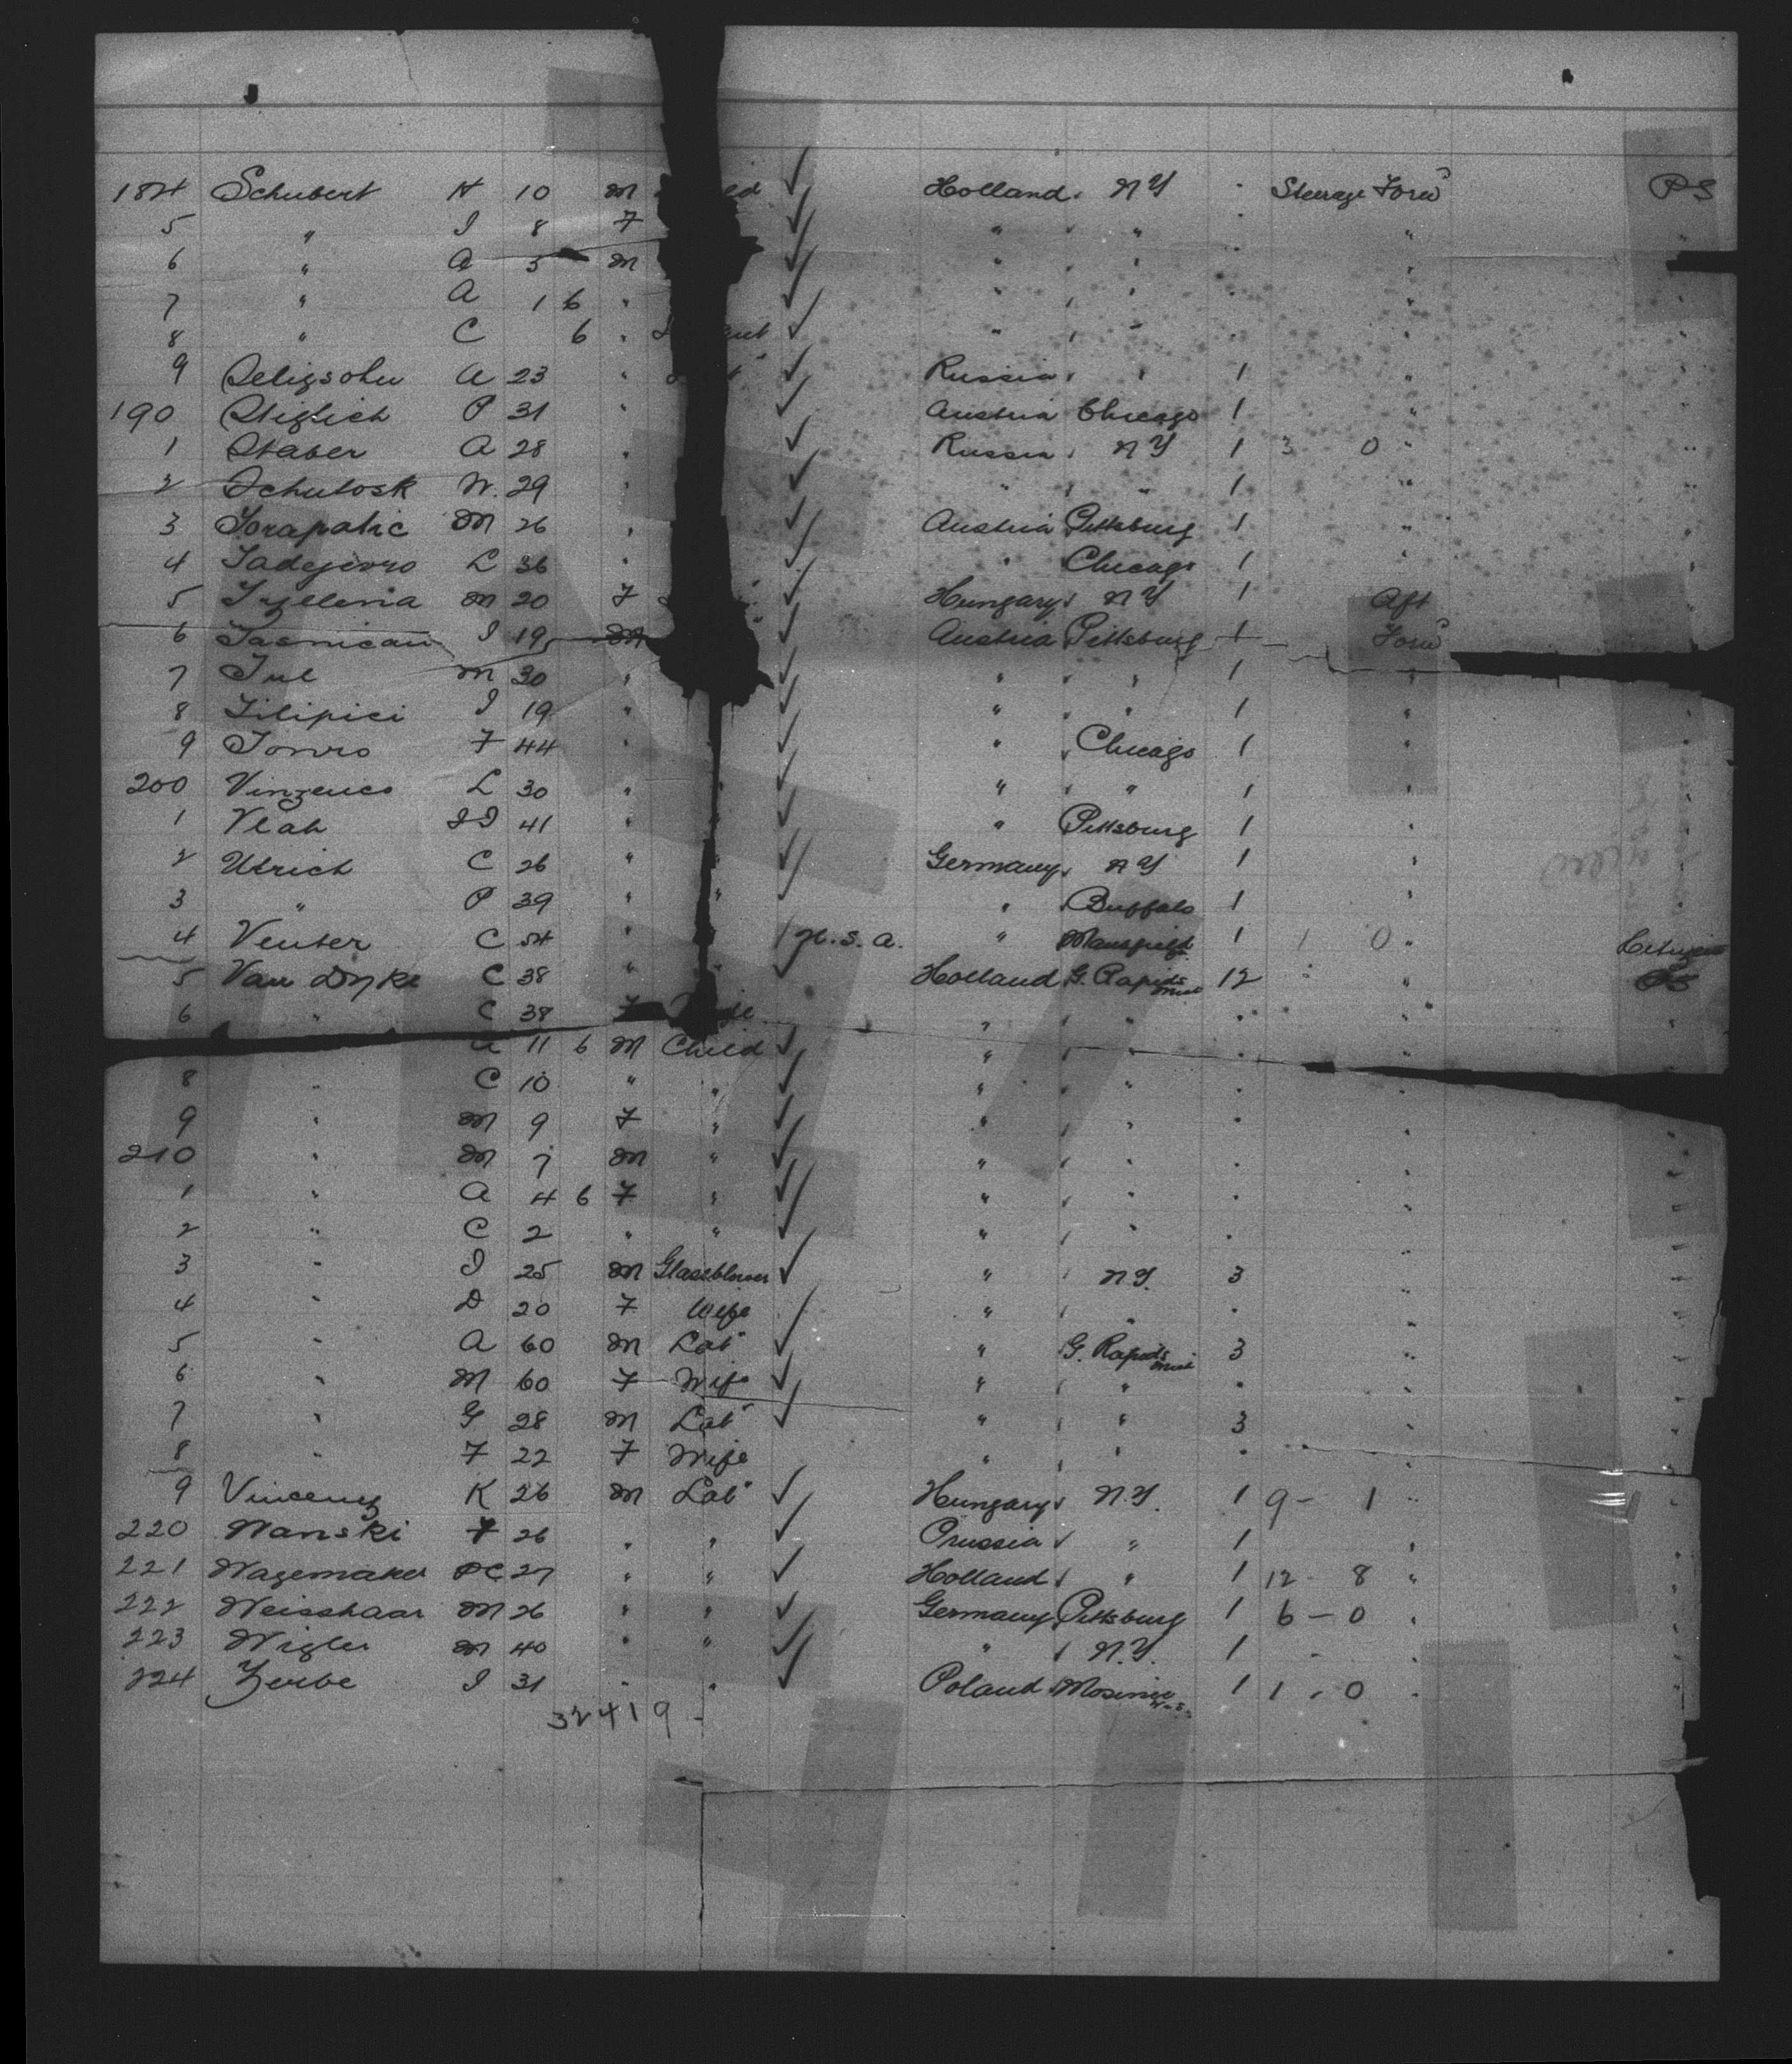 184 Schubert H 10 M ld ✓ Holland NY Steerage Forwd PS
5 " J 8 F ✓ " " " "
6 " A 5 M ✓ " " " "
7 " A 1 6 " ✓ " " " "
8 " C 6 " ✓ " " " "
9 Seligsohn A 23 " ✓ Russia " 1 " "
190 Stiglich P 31 " ✓ Austria Chicago 1 " "
1 Staber A 28 " ✓ Russia NY 1 3 0 " "
2 W. 29 " ✓ " " 1 " "
3 M 26 " ✓ Austria Pittsburg 1 " "
4 L 36 " ✓ " Chicago 1 " "
5 M 20 F ✓ Hungary NY 1 Aft "
6 J 19 M ✓ Austria Pittsburg 1 Forwd
7 M 30 " ✓ " " 1 "
8 J 19 " ✓ " " 1 " "
9 F 44 " ✓ " Chicago 1 " "
200 L 30 " ✓ " " 1 " "
1 Vlah 41 " ✓ " Pittsburg 1 " "
2 Ulrich C 26 " " ✓ Germany NY 1 " "
3 " P 39 " " ✓ " Buffalo 1 " "
4 Venter C 54 " " Mansfield 1 1 0 "
5 Van Dyke C 38 " " ✓ Holland G. Rapids Mich 12 " " PS
6 " C 38 F " " " "
11 6 M Child ✓ " " " "
8 " C 10 " " ✓ " " " "
9 " M 9 F " ✓ " " " "
210 " M 7 M " ✓ " " " "
1 " A 4 6 F " ✓ " " " "
2 " C 2 " " ✓ " " " "
3 " J 25 M Glassblower ✓ " N.Y. 3 " "
4 " D 20 F Wife ✓ " " " "
5 " A 60 M Labr ✓ " G. Rapids Mich 3 " "
6 " M 60 F Wife ✓ " " " "
7 " G 28 M Labr ✓ " " 3 " "
8 " F 22 F Wife " " " "
9 Vincenz K 26 M Labr ✓ Hungary N.Y. 1 9 - 1 " "
220 Wanski F 26 " " ✓ Prussia " 1 " "
221 Wagemaker PC 27 " " ✓ Holland " 1 12 - 8 " "
222 Weisshaar M 26 " " ✓ Germany Pittsburg 1 6 - 0 " "
223 Wigler M 40 " " ✓ " N.Y. 1 " "
224 Zerbe J 31 " " ✓ Poland Mosinee Wis 1 1 . 0 " "
32419 -